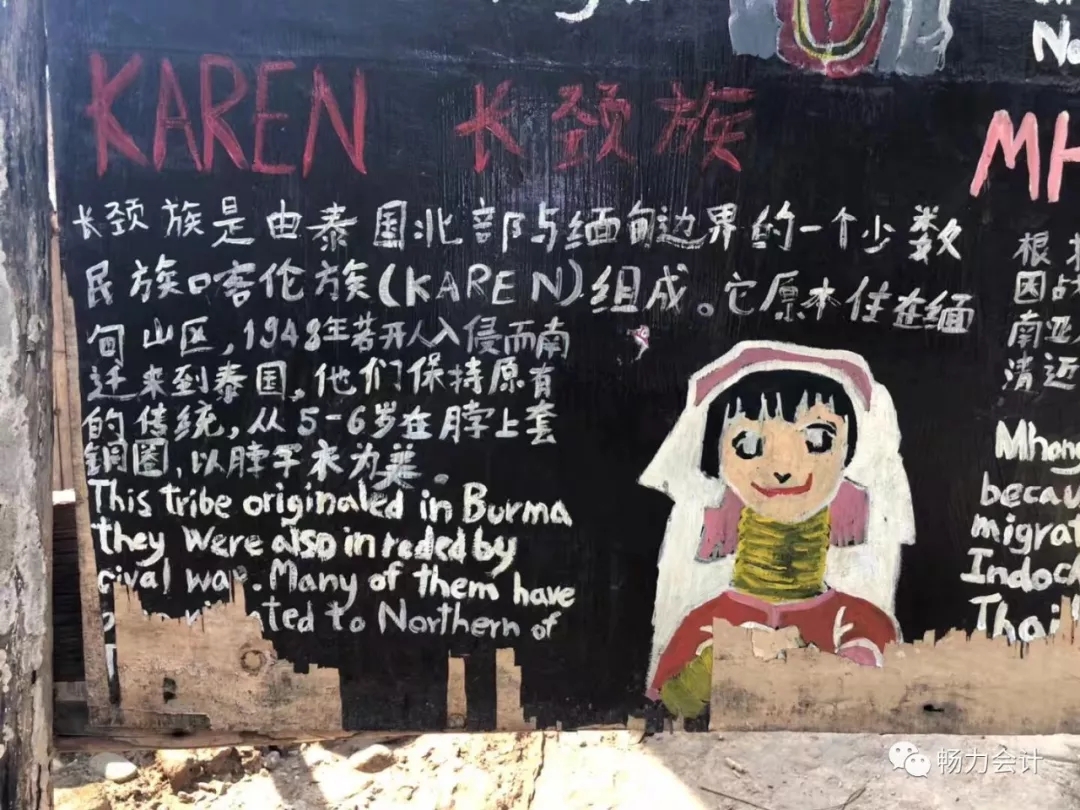 No
KAREN 长颈族
MH
长颈族是由泰国北部与缅甸边界的一个少数
民族喀伦族(KAREN)组成。它原本住在缅
甸山区,1948年若开人入侵而南
迁来到泰国,他们保持原有
的传统,从5-6岁在脖上套
铜圈,以脖子长为美。
This tribe originaled in Burma
they were also inreded by
cival war. Many of them have
ted to Northern of
根
因
南亚
清近
Mhong
becau
migrat
Indoc
Thail
畅力会计